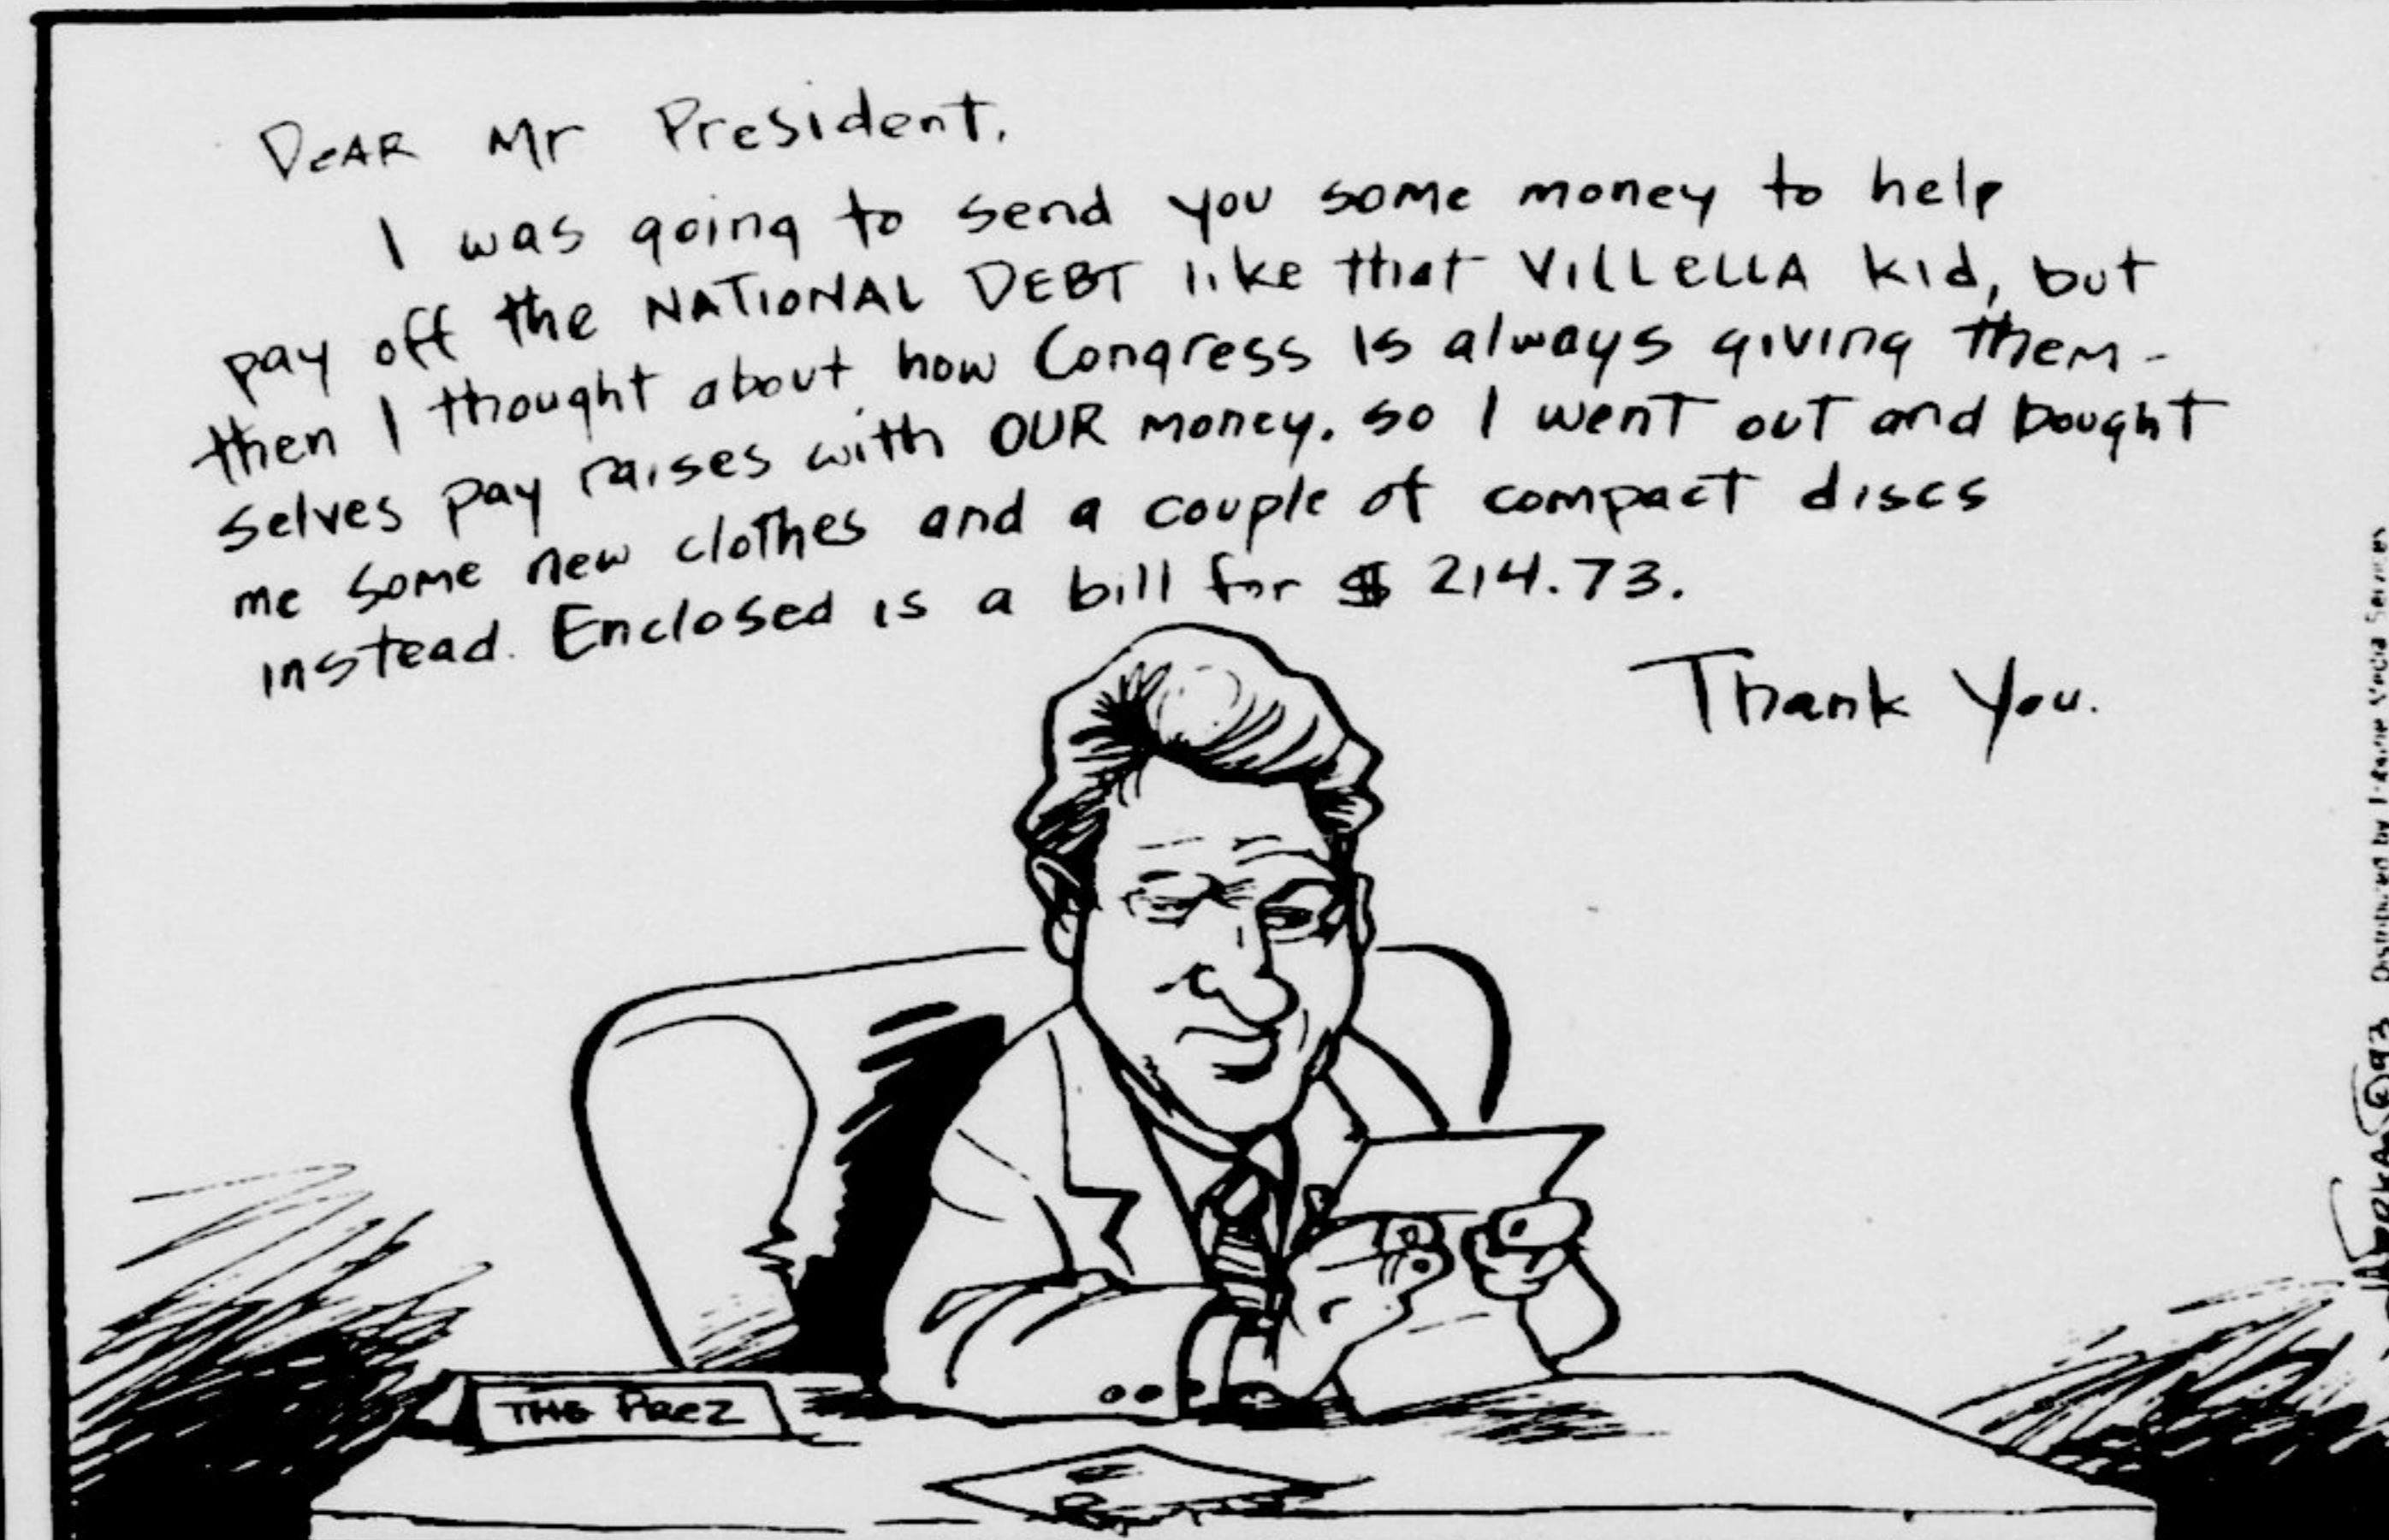 DeAR Mr President,
I was going to send you some money to help
pay off the NATIONAL DEBT like that VILLELLA kid, but
then I thought about how Congress is always giving them-
selves pay raises with OUR money. so I went out and bought
me some new clothes and a couple of compact discs
instead. Enclosed is a bill for $ 214.73.
Thank You.
THE PREZ
©93 Distributed by Media Services